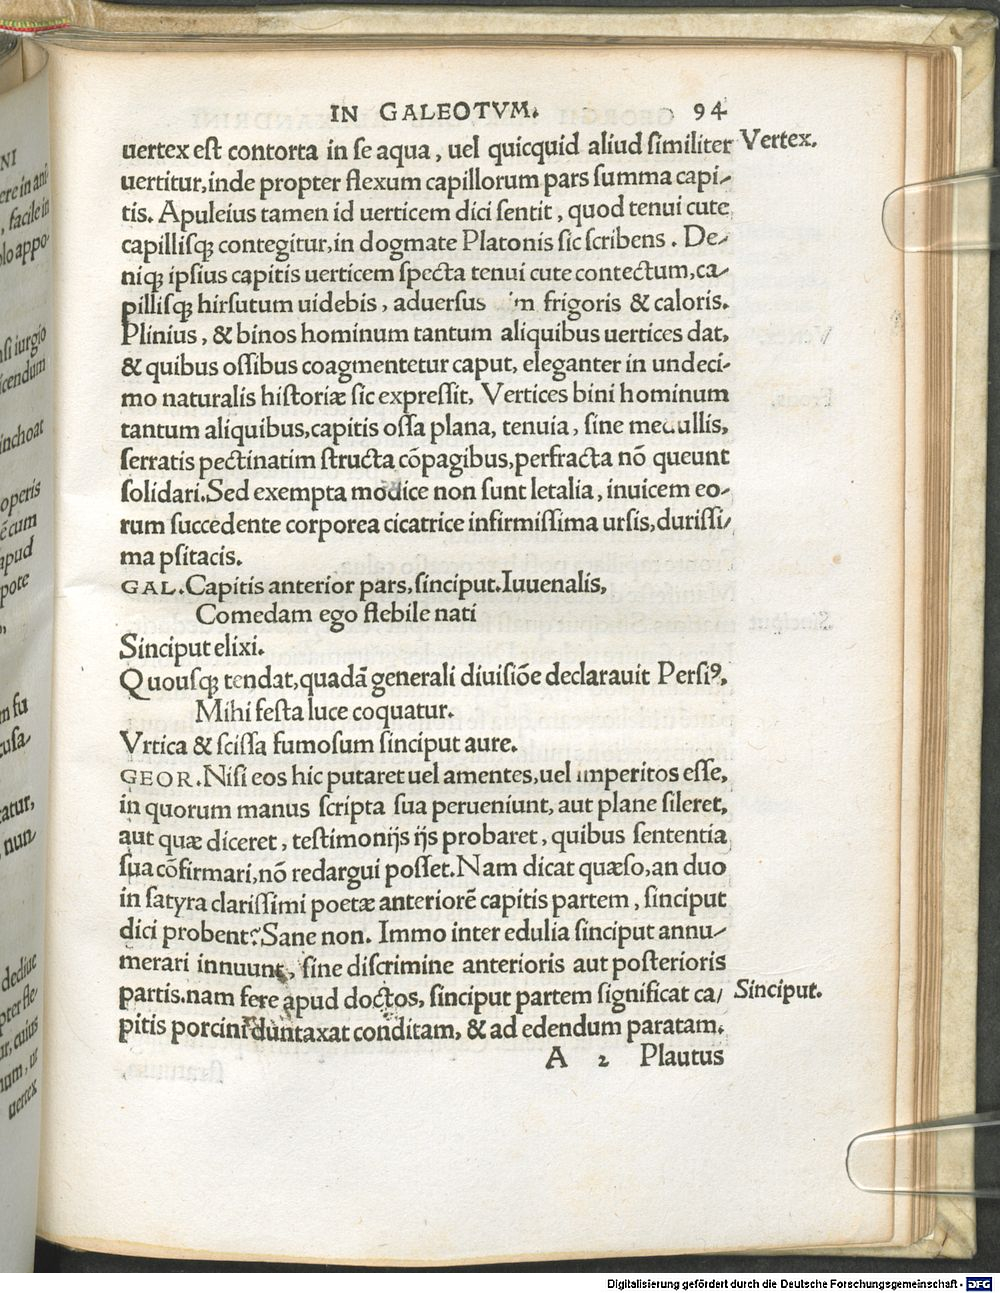 IN GALEOTVM. 94
uertex est contorta in se aqua, uel quicquid aliud similiter Vertex.
uertitur, inde propter flexum capillorum pars summa capi-
tis. Apuleius tamen id uerticem dici sentit, quod tenui cute
capillisq; contegitur, in dogmate Platonis sic scribens. De-
niq; ipsius capitis uerticem specta tenui cute contectum, ca-
pillisq; hirsutum uidebis, aduersus frigoris & caloris.
Plinius, & binos hominum tantum aliquibus uertices dat,
& quibus ossibus coagmentetur caput, eleganter in undeci-
mo naturalis historiæ sic expressit, Vertices bini hominum
tantum aliquibus, capitis ossa plana, tenuia, sine medullis,
serratis pectinatim structa cõpagibus, perfracta nõ queunt
solidari. Sed exempta modice non sunt letalia, inuicem eo-
rum succedente corporea cicatrice infirmissima ursis, durissi-
ma psitacis.
GAL. Capitis anterior pars, sinciput. Iuuenalis,
Comedam ego flebile nati
Sinciput elixi.
Quousq; tendat, quadã generali diuisiõe declarauit Persiꝰ,
Mihi festa luce coquatur.
Vrtica & scissa fumosum sinciput aure.
GEOR. Nisi eos hic putaret uel amentes, uel imperitos esse,
in quorum manus scripta sua perueniunt, aut plane sileret,
aut quæ diceret, testimonijs ijs probaret, quibus sententia
sua cõfirmari, nõ redargui posset. Nam dicat quæso, an duo
in satyra clarissimi poetæ anteriorẽ capitis partem, sinciput
dici probent? Sane non. Immo inter edulia sinciput annu-
merari innuunt, sine discrimine anterioris aut posterioris
partis. nam fere apud doctos, sinciput partem significat ca- Sinciput.
pitis porcini duntaxat conditam, & ad edendum paratam.
A 2 Plautus
NI
, facile in
olo appo-
si iurgio
icendum
inchoat
operis
ẽ cum
apud
pote
m fu
cusa-
atur,
nun-
decliue
uertex
Digitalisierung gefördert durch die Deutsche Forschungsgemeinschaft - DFG